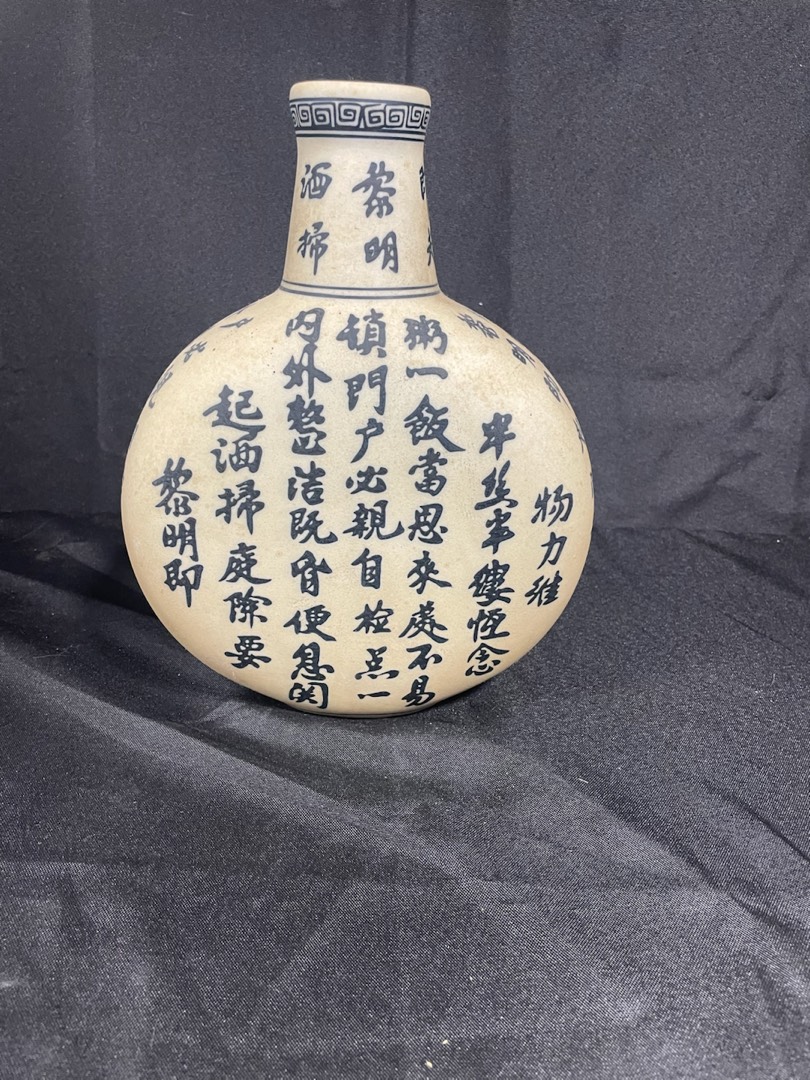 洒掃
黎明
黎明即
起洒掃庭除要
内外整洁既昏便息関
鎖門户必親自检点一
粥一飯當思來處不易
半丝半縷恒念
物力維